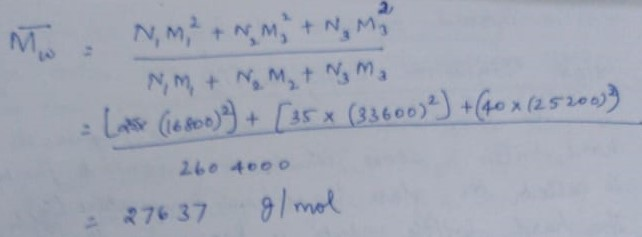 M̅w = N₁M₁² + N₂M₂² + N₃M₃²
N₁M₁ + N₂M₂ + N₃M₃
= [ (16800)²] + [35 × (33600)²] + (40 × (25200)²)
260 4000
= 27637 g/mol